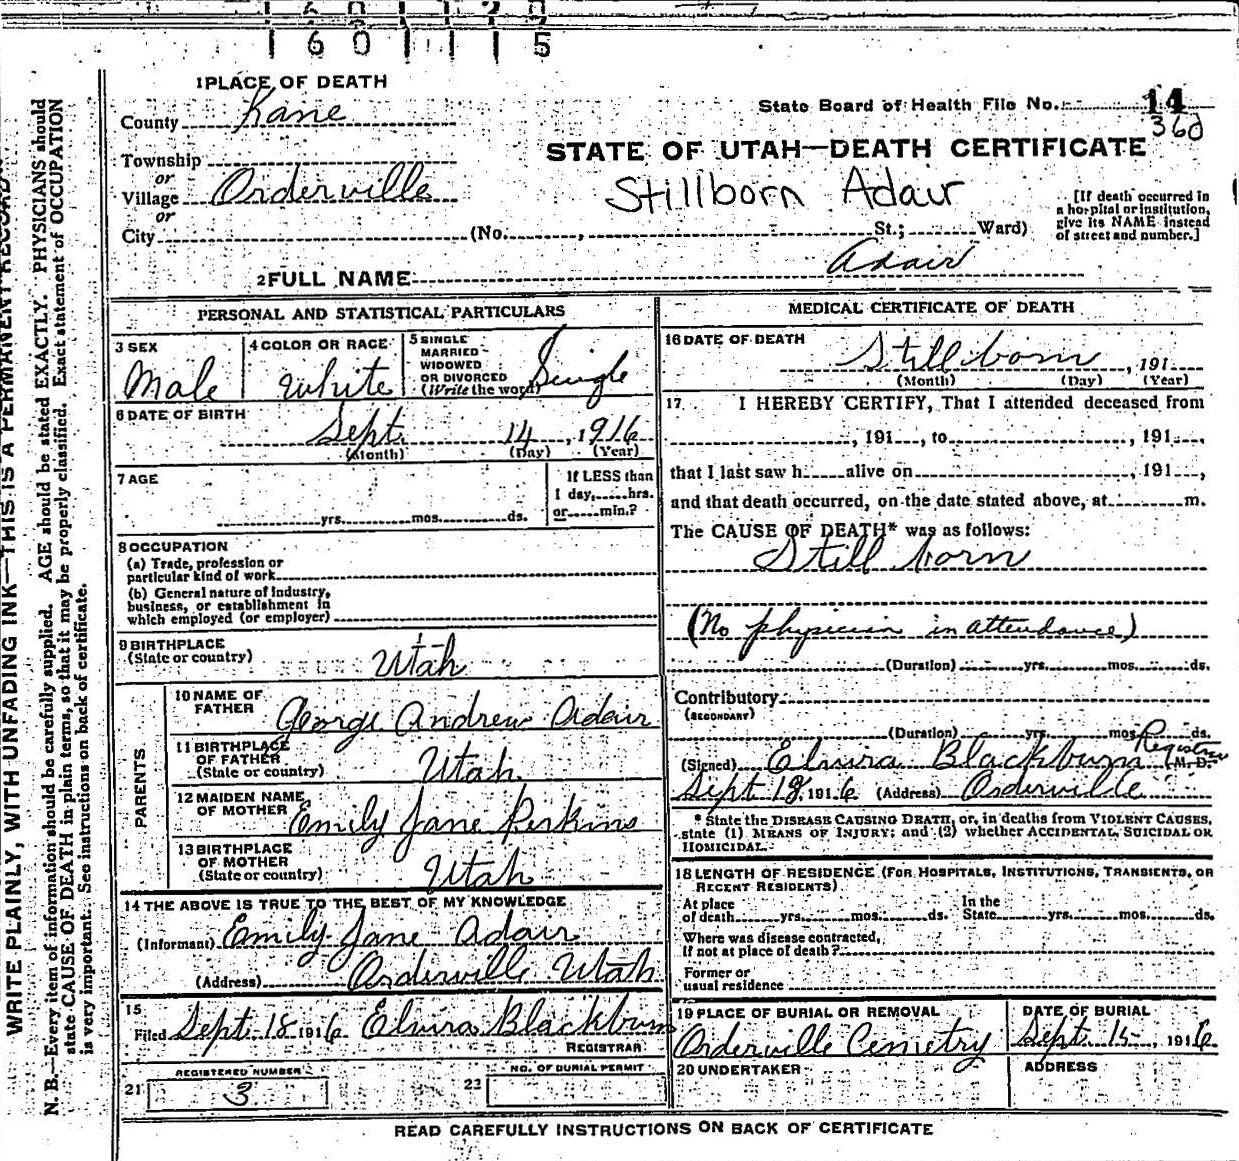 1 6 0 1 1 1 5
1 PLACE OF DEATH
County Kane
Township
or
Village Orderville
or
City (No. , St.; Ward)
State Board of Health File No. 14
360
STATE OF UTAH—DEATH CERTIFICATE
Stillborn Adair
[If death occurred in
a hospital or institution,
give its NAME instead
of street and number.]
2 FULL NAME Adair
PERSONAL AND STATISTICAL PARTICULARS
3 SEX
Male
4 COLOR OR RACE
White
5 SINGLE
MARRIED
WIDOWED
OR DIVORCED
(Write the word) Single
6 DATE OF BIRTH
Sept. 14, 1916
(Month) (Day) (Year)
7 AGE
yrs. mos. ds.
If LESS than
1 day, hrs.
or min.?
8 OCCUPATION
(a) Trade, profession or
particular kind of work
(b) General nature of Industry,
business, or establishment in
which employed (or employer)
9 BIRTHPLACE
(State or country) Utah
PARENTS
10 NAME OF
FATHER George Andrew Adair
11 BIRTHPLACE
OF FATHER
(State or country) Utah
12 MAIDEN NAME
OF MOTHER Emily Jane Perkins
13 BIRTHPLACE
OF MOTHER
(State or country) Utah
14 THE ABOVE IS TRUE TO THE BEST OF MY KNOWLEDGE
(Informant) Emily Jane Adair
(Address) Orderville Utah
15
Filed Sept. 18 1916 Elvira Blackburn
REGISTRAR
REGISTERED NUMBER
21 3
NO. OF BURIAL PERMIT
22
MEDICAL CERTIFICATE OF DEATH
16 DATE OF DEATH
Still born, 191
(Month) (Day) (Year)
17 I HEREBY CERTIFY, That I attended deceased from
, 191 , to , 191 ,
that I last saw h alive on , 191 ,
and that death occurred, on the date stated above, at m.
The CAUSE OF DEATH* was as follows:
Still born
(No physician in attendance)
(Duration) yrs. mos. ds.
Contributory
(SECONDARY)
(Duration) yrs. mos. ds.
(Signed) Elvira Blackburn Registrar (M. D.
Sept 18, 1916 (Address) Orderville
* State the DISEASE CAUSING DEATH, or, in deaths from VIOLENT CAUSES,
state (1) MEANS OF INJURY; and (2) whether ACCIDENTAL, SUICIDAL OR
HOMICIDAL.
18 LENGTH OF RESIDENCE (FOR HOSPITALS, INSTITUTIONS, TRANSIENTS, OR
RECENT RESIDENTS)
At place
of death yrs. mos. ds.
In the
State yrs. mos. ds.
Where was disease contracted,
if not at place of death?
Former or
usual residence
19 PLACE OF BURIAL OR REMOVAL
Orderville Cemetry
DATE OF BURIAL
Sept. 15, 1916
20 UNDERTAKER
ADDRESS
READ CAREFULLY INSTRUCTIONS ON BACK OF CERTIFICATE
WRITE PLAINLY, WITH UNFADING INK—THIS IS A PERMANENT RECORD
N. B.—Every item of information should be carefully supplied. AGE should be stated EXACTLY. PHYSICIANS should
state CAUSE OF DEATH in plain terms, so that it may be properly classified. Exact statement of OCCUPATION
is very important. See instructions on back of certificate.